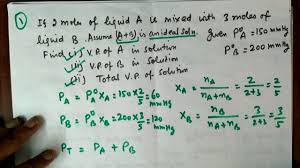 ① If 2 moles of liquid A is mixed with 3 moles of
liquid B. Assume (A+B) is an ideal soln. given P°A = 150 mmHg
Find (i) V.P. of A in solution P°B = 200 mmHg
(ii) V.P. of B in solution
(iii) Total V.P. of solution
PA = P°A XA = 150 × 2/5 = 60 mmHg XA = nA/(nA+nB) = 2/(2+3) = 2/5
PB = P°B XB = 200 × 3/5 = 120 mmHg XB = nB/(nA+nB) = 3/(2+3) = 3/5
PT = PA + PB